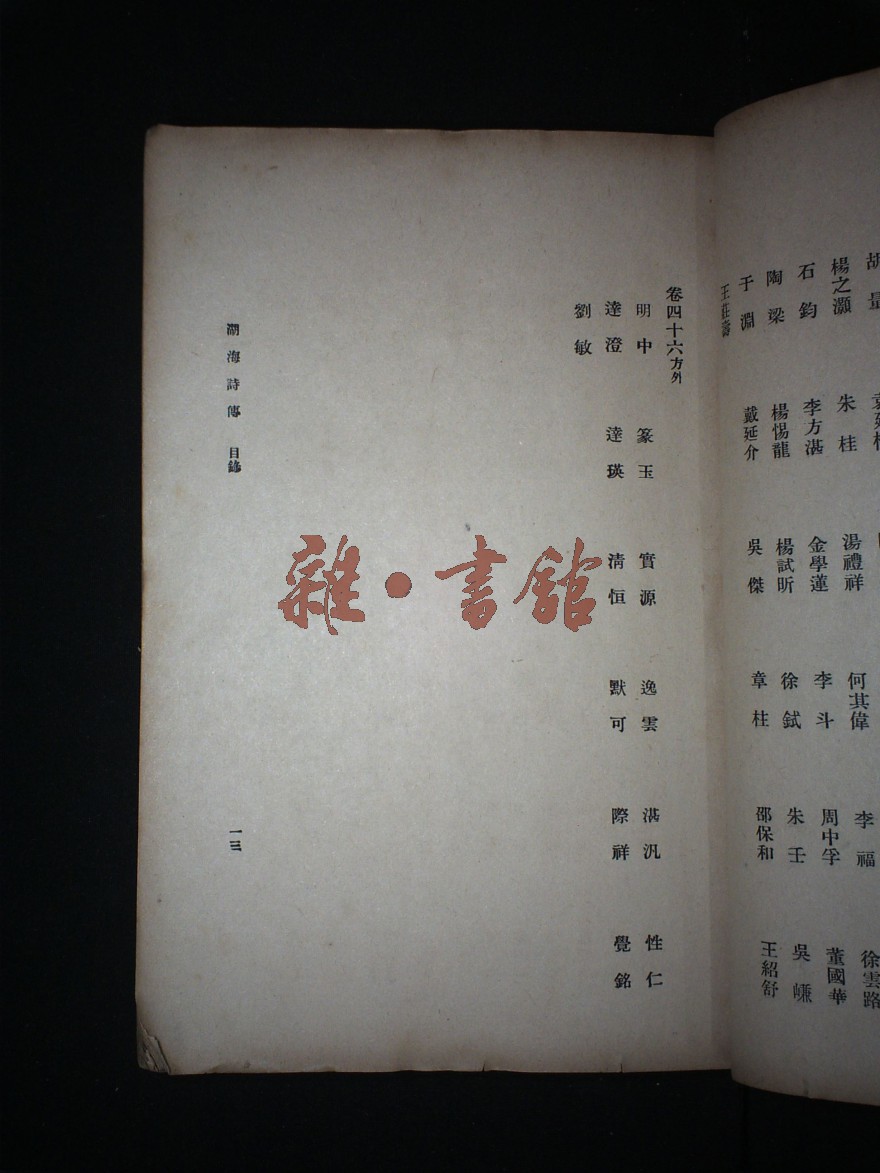 楊之灝 朱桂 湯禮祥 何其偉 李福 徐雲路
石鈞 李方湛 金學蓮 李斗 周中孚 董國華
陶梁 楊惕龍 楊試昕 徐鉽 朱壬 吳嵰
于淵 戴延介 吳傑 章柱 邵保和 王紹舒
卷四十六方外
明中 篆玉 實源 逸雲 湛汎 性仁
達澄 達瑛 清恒 默可 際祥 覺銘
劉敏
湖海詩傳 目錄 一三
雜·書館